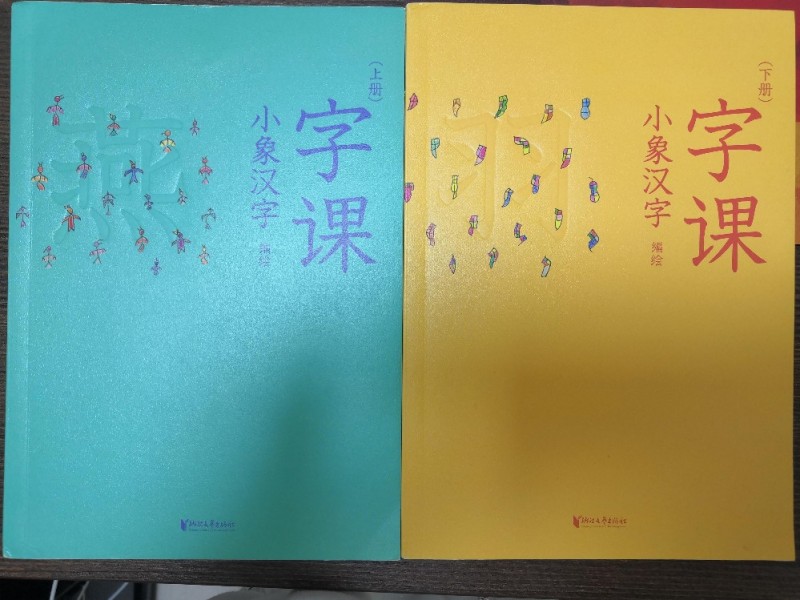 字课
(上册)
小象汉字
编绘
燕
浙江文艺出版社
字课
(下册)
小象汉字
编绘
羽
浙江文艺出版社